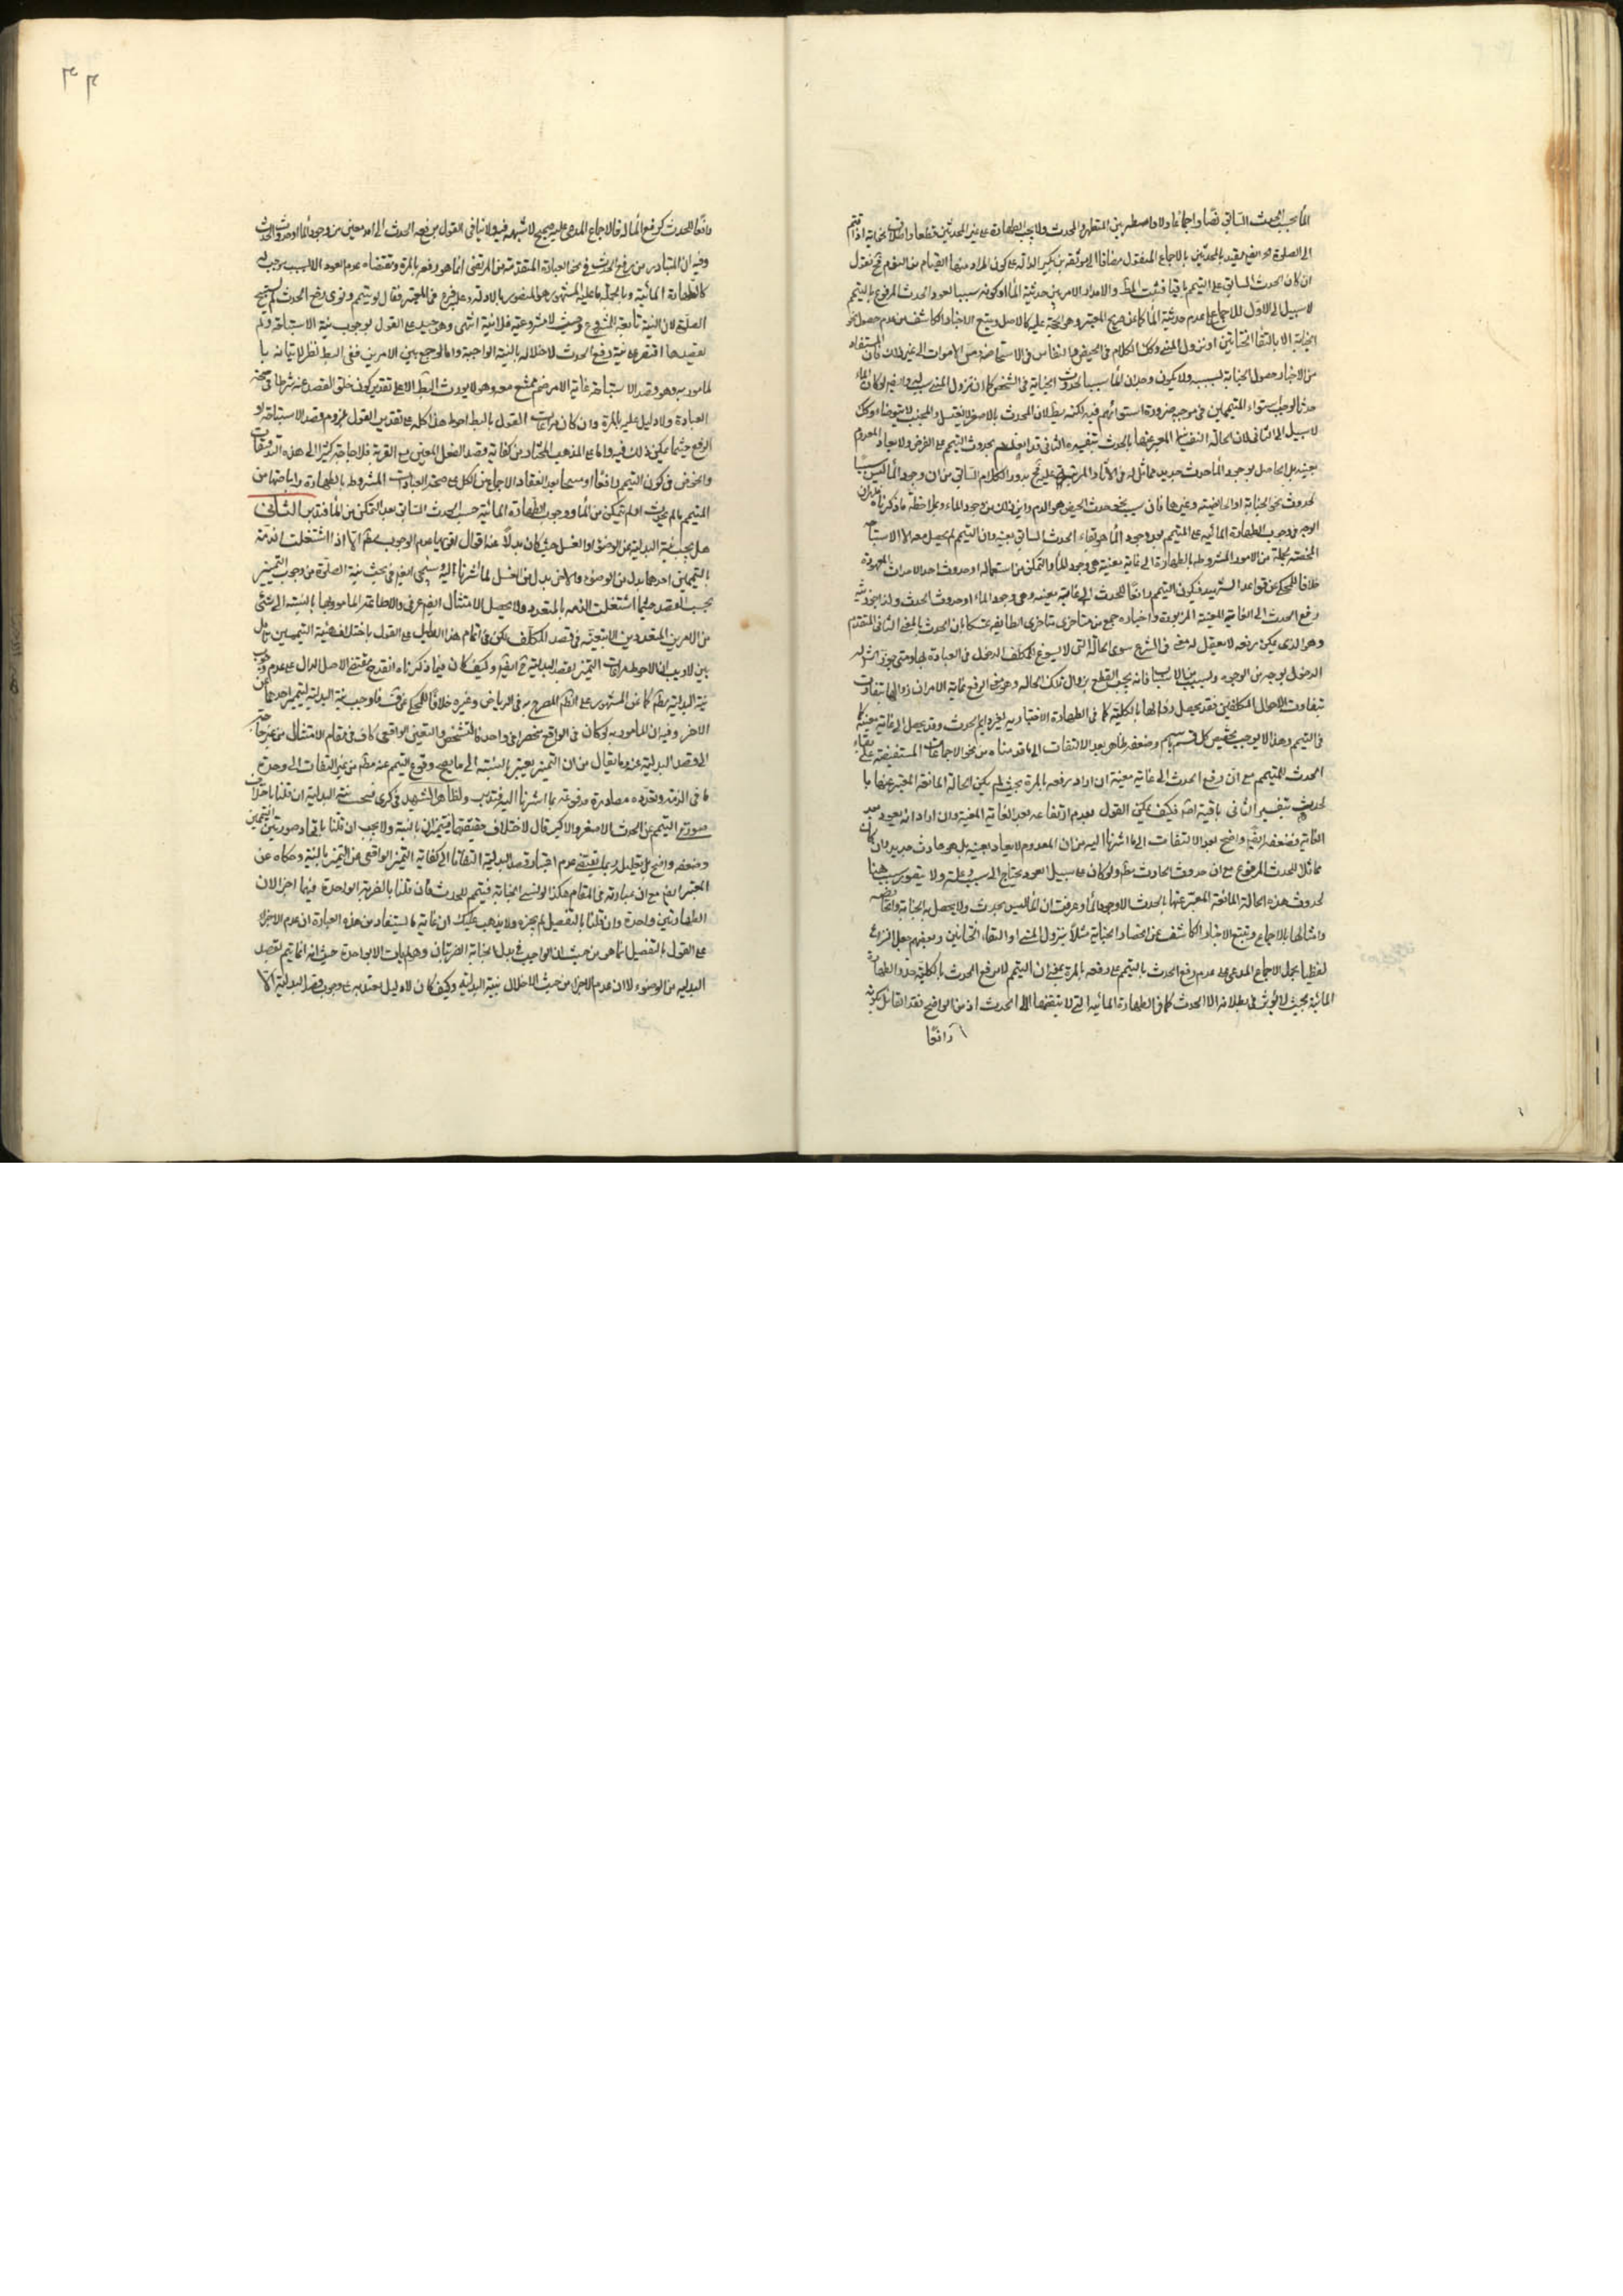 الماء بحسب الحدث السابق نصا واجماعا ولا واسطة بين المتطهر والمحدث ولا يجب الطهارة على غير المحدثين قطعا
الى الصلوة بالاجماع المنقول مضافا الى موثقة بن بكير الدالة على كون المراد منها القيام من النوم فح نقول
ان كان الحدث السابق على التيمم باقيا فثبت المط والا دار الامر بين حدثية الماء او كونه سببا لعود الحدث المرفوع بالتيمم
لا سبيل الى الاول للاجماع على عدم حدثية الماء كما عن صريح المعتبر وهو الحجة عليه كالاصل وتتبع الاخبار الكاشف عن عدم حصول
الجنابة الا بالتقاء الختانين او نزول المنى وكك الكلام في الحيض والنفاس والاستحاضة ومس الاموات الى غير ذلك فان المستفاد
من الاخبار حصول الجنابة بسببه ولا يكون وجدان الماء سببا لحدوث الجنابة في الشخص كما ان نزول المنى سبب له ولو كان الماء
حدثا لوجب استواء المتيممين في موجبه ضرورة استوائهم فيه لكنه بط لان المحدث بالاصغر لا يغتسل والمجنب لا يتوضأ وكك
لا سبيل الى الثانى لان الحالة المعبر عنها بالحدث بتفسيره الثانى قد بحدوث التيمم على الفرض ولا يعاد المعدوم
بعينه بل الحاصل بوجود الماء حدث جديد مماثل له في الآثار المرتبة عليه فح يدور الكلام السابق من ان وجود الماء ليس سببا
لحدوث نحو الجنابة او الحائضية وغيرها فان سبب حدث الحيض هو الدم واين ذلك من وجود الماء وملاحظة ما ذكرناه
الوجه في وجوب الطهارة المائية على المتيمم بعد وجود الماء هو بقاء الحدث السابق بعينه وان التيمم لم يحصل معه الا الاستباحة
المختصة بجملة من الامور المشروطة بالطهارة الى غاية معينة هي وجود الماء والتمكن من استعماله او حدوث احد الاحداث المعهودة
خلافا للمحكى عن قواعد الشهيد فيكون التيمم رافعا للحدث الى غاية معينة وهى وجود الماء او حدوث الحدث
رفع الحدث الى الغاية المعينة المزبورة واختاره جمع من متأخرى متأخرى الطائفة تمسكا بان الحدث بالمعنى الثانى المتقدم
وهو الذى يمكن رفعه لا يعقل له معنى في الشرع سوى الحالة التى لا يسوغ للمكلف الدخول في العبادة بها ومتى جوز الشارع له
الدخول بوجه من الوجوه ولسبب من الاسباب فانه يجب القطع بزوال تلك الحالة وهو معنى الرفع غاية الامر ان زوالها يتفاوت
بتفاوت الاحوال للمكلفين فقد يحصل زوالها بالكلية كما في الطهارة الاختيارية لغير دائم الحدث وقد يحصل الى غاية معينة كما
في التيمم وهذا لا يوجب تخصيص كل قسم باسم وضعفه ظاهر بعد الالتفات الى ما قدمناه من نحو الاجماعات المستفيضة على بقاء
الحدث للمتيمم مع ان رفع الحدث الى غاية معينة ان اراد برفعه بالمرة بحيث لم يكن الحالة المانعة المعبر عنها با
لحدث بتفسيره الثانى باقية اصلا فكيف يمكن القول بعدم ارتفاعه بعد الغاية المغيية وان اراد انه يعود بعد
الغاية فضعفه ايض واضح بعد الالتفات الى ما اشرنا اليه من ان المعدوم لا يعاد بعينه بل هو حادث جديد وان كان
مماثلا للحدث المرفوع مع ان حدوث الحادث مط ولو كان على سبيل العود يحتاج الى سبب وعلة ولا يتصور سبب هنا
لحدوث هذه الحالة المانعة المعبر عنها بالحدث الا وجود الماء وعرفت ان الماء ليس بحدث ولا يحصل به الجنابة والحائضية
وامثالها بالاجماع وتتبع الاخبار الكاشف عن انحصار الجنابة مثلا بنزول المنى او التقاء الختانين وبعضهم جعل النزاع
لفظيا بحمل الاجماع المدعى على عدم رفع الحدث بالتيمم على رفعه بالمرة بمعنى ان التيمم لا يرفع الحدث بالكلية حد والطهارة
المائية بحيث لا يؤثر في بطلانه الا الحدث كما في الطهارة المائية التى لا ينقضها الا الحدث اذ من الواضح فقد القائل بكونه
رافعا
رافعا للحدث كرفع الماء له فالاجماع المدعى عليه صحيح لا شبهة فيه ولا ينافى القول برفعه الحدث الى امد معين من وجود الماء او حدوث الحدث
وفيه ان المتبادر من رفع الحدث في نحو العبادة المتقدمة من المرتضى انما هو رفعه بالمرة ومقتضاه عدم العود الا لسبب يوجبه
كالطهارة المائية وبالجملة ما عليه المشهور هو المنصور بالادلة وعليه فرع في المعتبر فقال لو تيمم ونوى رفع الحدث لم يستبح
الصلوة لان النية تابعة للمشروع وحيث لا مشروعية فلا نية انتهى وهو جيد على القول بوجوب نية الاستباحة ولم
يقصدها اقتصر على نية رفع الحدث لاخلاله بالنية الواجبة واما لو جمع بين الامرين ففى البط نظر لاتيانه با
لمأمور به وهو قصد الاستباحة غاية الامر ضم ممتنع معه وهو لا يورث البط الا على تقدير كون خلو القصد عنه شرطا في صحة
العبادة ولا دليل عليه بالمرة وان كان مراعات القول بالبط احوط هذا كله على تقدير القول بلزوم قصد الاستباحة او
الرفع حيثما يمكن ذلك فيه واما على المذهب المختار من كفاية قصد الفعل المعين مع القربة فلا حاجة كثيرا الى هذه التدقيقات
والخوض في كون التيمم رافعا او مبيحا بعد انعقاد الاجماع من الكل على صحة العبادت المشروط بالطهارة واباحتها من
المتيمم ما لم يحدث او لم يتمكن من الماء ووجوب الطهارة المائية حسب الحدث السابق بعد التمكن من الماء فتدبر الثانى
هل يجب نية البدلية عن الوضوء او الغسل حيث كان بدلا عنه اقوال اقويها عدم الوجوب نعم انما اذا اشتغلت الذمة
بالتيممين احدهما بدل من الوضوء والاخر بدل من الغسل لما اشرنا اليه وسيجئ ايض في بحث نية الصلوة من وجوب التمييز
بحسب القصد حيثما اشتغلت الذمة بالمتعدد ولا يحصل الامتثال ايض عرفى والاطاعة المامور بها بالنسبة الى شئ
من الامرين المتعددين الا بتعيينه في قصد المكلف ولكن في اتمام هذا الدليل على القول باختلاف هيئة التيممين تأمل
بين لا ريب ان الاحوط مراعات التميز بقصد البدلية ايض وكيف كان فيما ذكرناه انقدح مقتضى الاصل الدال على عدم وجوب
نية البدلية مط كما عن المشهور على الظ المصرح به في الرياض وغيره خلافا للمحكى عن ف فاوجب نية البدلية ليتميز احدهما عن
الاخر وفيه ان المامور به لو كان في الواقع منحصرا في واحد فالتشخص والتعين الواقعى كاف في مقام الامتثال من غير حاجة
الى قصد البدلية عنه وما يقال من ان التميز يعتبر بالنسبة الى ما يصح وقوع التيمم عنه مط من غير التفات الى وحدة
ما في الذمة وتعدده مصادرة مدفوعة بما اشرنا اليه فتدبر ولظاهر الشهيد في كرى فيجب نية البدلية ان قلنا باختلاف
صورتى التيمم عن الحدث الاصغر والاكبر قال لاختلاف حقيقتهما فيتميزان بالنية ولا يجب ان قلنا باتحاد صورتى التيممين
وضعفه واضح بل تعليله ربما يقتضى عدم اعتبار قصد البدلية التفاتا الى كفاية التميز الواقعى عن التميز بالنية وحكاه عن
المعتبر ايض مع ان عبارته في المقام هكذا لو نسى الجنابة فتيمم للحدث فان قلنا بالضربة الواحدة فيهما اجزأ لان
الطهارتين واحدة وان قلنا بالتفصيل لم يجزه ولا يذهب عليك ان غاية ما يستفاد من هذه العبارة ان عدم الاجزاء
على القول بالتفصيل انما هو من حيث ان الواجب في بدل الجنابة الضربتان وهو لم يات الا بواحدة حيث انه انما تيمم بقصد
البدلية من الوضوء لا ان عدم الاجزاء من حيث الاخلال بنية البدلية وكيف كان لا دليل يعتد به في وجوب قصد البدلية الا